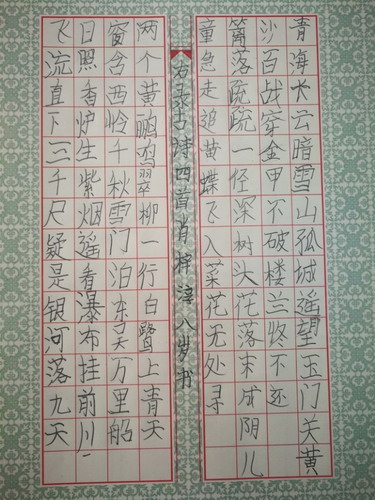 青海长云暗雪山孤城遥望玉门关黄
沙百战穿金甲不破楼兰终不还
篱落疏疏一径深树头花落未成阴儿
童急走追黄蝶飞入菜花无处寻
两个黄鹂鸣翠柳一行白鹭上青天
窗含西岭千秋雪门泊东吴万里船
日照香炉生紫烟遥看瀑布挂前川
飞流直下三千尺疑是银河落九天
右录古诗四首肖梓淳八岁书